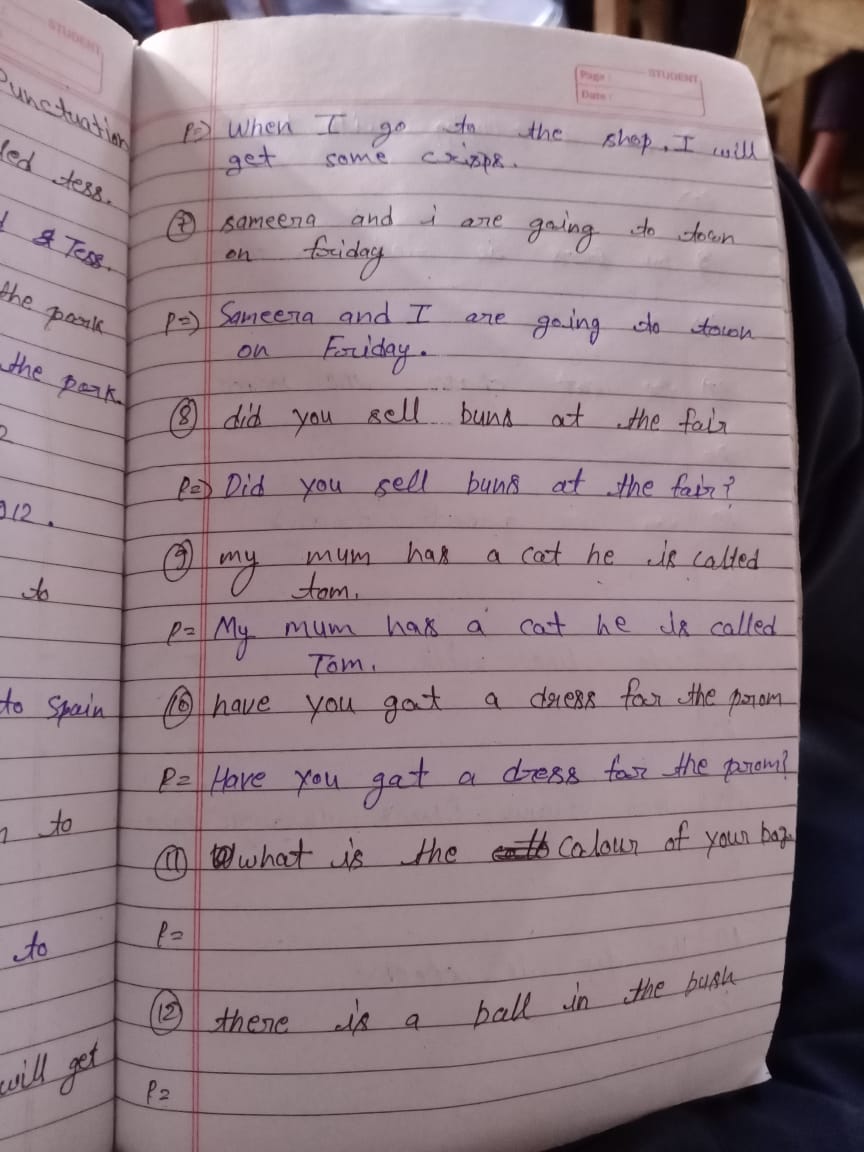 STUDENT
Punctuation
led tess.
& Tess.
the park
the park.
912.
to
to Spain
to
to
will get
Page : STUDENT
Date :
P=) When I go to the shop, I will
get some crisps.
(7) sameera and i are going to town
on friday
P=) Sameera and I are going to town
on Friday.
(8) did you sell buns at the fair
P=) Did you sell buns at the fair?
(9) my mum has a cat he is called
tom.
P= My mum has a cat he is called
Tom.
(10) have you got a dress for the prom
P= Have you got a dress for the prom?
(11) what is the colour of your bag.
P=
(12) there is a ball in the bush
P=